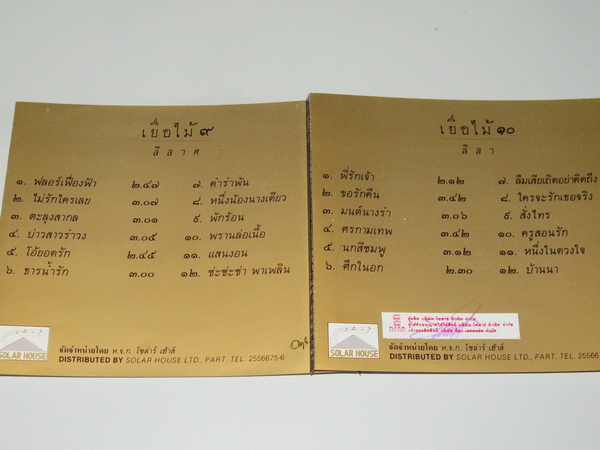 เยื่อไม้ ๙
ลีลาศ
๑. ฟลอร์เฟื่องฟ้า ๒.๔๗
๒. ไม่รักใครเลย ๓.๐๗
๓. ตะลุงสากล ๓.๐๑
๔. บ่าวสาวรำวง ๓.๐๕
๕. โอ้ยอดรัก ๒.๔๕
๖. ธารน้ำรัก ๓.๐๐
๗. คำรำพัน
๘. หนึ่งน้องนางเดียว
๙. พักร้อน
๑๐. พรานล่อเนื้อ
๑๑. แสนงอน
๑๒. ช่ะช่ะช่า พาเพลิน
SOLAR HOUSE
จัดจำหน่ายโดย ห.จ.ก. โซล่าร์ เฮ้าส์
DISTRIBUTED BY SOLAR HOUSE LTD., PART. TEL. 2556675-6
เยื่อไม้ ๑๐
ลีลา
๑. พี่รักเจ้า ๒.๑๒
๒. ขอรักคืน ๓.๔๒
๓. มนต์นางรำ ๓.๐๖
๔. ศรกามเทพ ๓.๔๒
๕. นกสีชมพู ๓.๑๒
๖. ศึกในอก ๒.๓๐
๗. ลืมเสียเถิดอย่าคิดถึง
๘. ใครจะรักเธอจริง
๙. สั่งไทร
๑๐. ครูสอนรัก
๑๑. หนึ่งในดวงใจ
๑๒. บ้านนา
SOLAR HOUSE
จัดจำหน่ายโดย ห.จ.ก. โซล่าร์ เฮ้าส์
DISTRIBUTED BY SOLAR HOUSE LTD., PART. TEL. 2